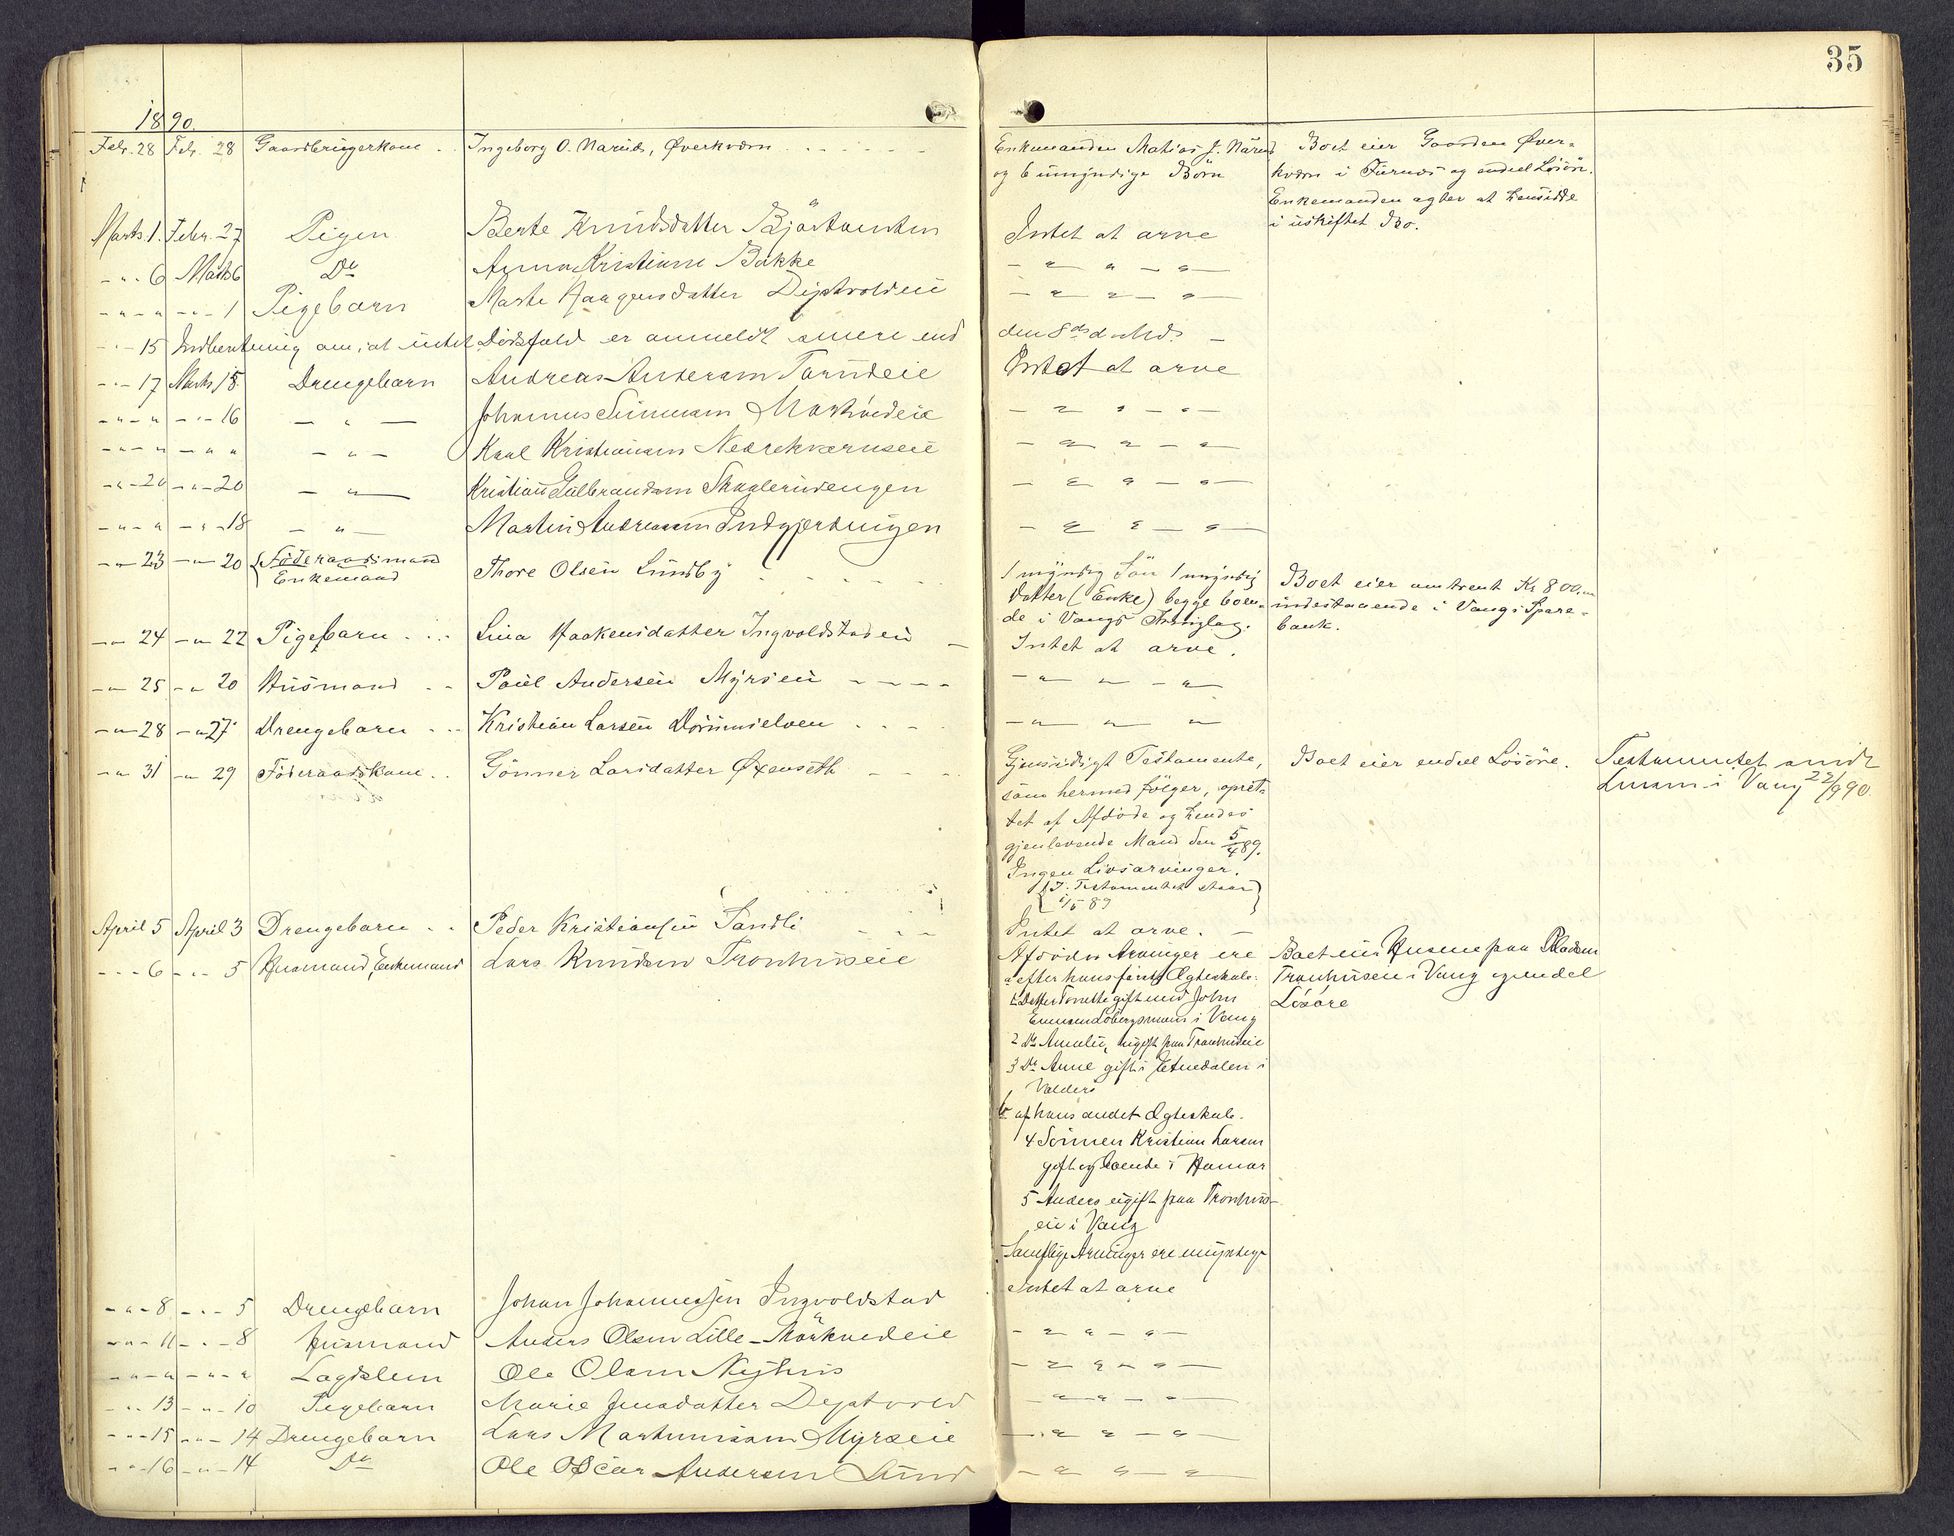 35
1890.
Febr. 28 Febr. 28 Gaardbrugerkone . . Ingeborg O. Narud, Øverkværn . . . . . . Enkemanden Mathias J. Narud Boet eier Gaarden Øver-
og 6 umyndige Børn kværn i Furnæs og endeel Løsøre.
Enkemanden agter at hensidde
i uskiftet Bo.
Marts 1. Febr. 27 Pigen Berte Knudsdatter Intet at arve
- " 6 Marts 6 Do Anna Kristiane Bakke - " " - " -
- " - " - " - 1 Pigebarn Marte Haagensdatter - " " - " -
- " - 15 Indberetning om, at intet Dødsfald er anmeldt senere end den 8de d. Md.
- " - 17 Marts 15. Drengebarn Andreas Andersen Intet at arve
- " - " - " - 16 - " - Johannes - " " - " -
- " - " - " " - " - Karl Kristiansen Nedrekværnseie - " " - " -
- " - 20 - " - 20 - " - Kristian Gulbrandsen - " " - " -
- " - " - " - 18 - " - Martin Andreassen - " " - " -
- " 23 - " 20 Føderaadsmand Thore Olsen Lundby . . . . 1 myndig Søn 1 myndig Boet eier omtrent Kr 800,00
Enkemand Datter (Enke) begge boen- indestaaende i Vangs Spare-
de i Vangs Thinglag. bank.
- " 24 - " 22 Pigebarn . . . Lina Haakensdatter Ingvoldstadeie - Intet at arve.
- " 25 - " 20 Husmand . . Paul Andersen Myrseie - - - - - " " - " -
- " 28 - " 27 Drengebarn . . . Kristian Larsen . . . - " " "
- " 31 - " 29 Føderaadskone . . Gønner Larsdatter Øxenseth - - - Gjensidigt Testamente, Boet eier endeel Løsøre. Testamentet
som hermed følger, opret- i Vang 22/9 90.
tet af Afdøde og hendes
gjenlevende Mand den 5/4 89.
Ingen Livsarvinger.
(I Testamentet staar
1/5 89)
April 5 April 3 Drengebarn . . Peder Kristiansen Sandli - - - Intet at arve. -
- " - 6 - " - 5 Husmand, Enkemand Lars Knudsen Tronhuseie Afdødes Arvinger ere Boet eier Husene paa Pladsen
a efter hans første Ægteskab: Tronhusen i Vang og endel
1 Datter gift med John Løsøre
i Vang
2 Do Amalie, ugift paa Tronhuseie
3 Do Anne gift i Etnedalen i
Valders
b af hans andet Ægteskab.
4 Sønnen Kristian Larsen
gift og boende i Hamar
5 Anders ugift paa Tronhus-
eie i Vang
Samtlige Arvinger ere myndige
- " - 8 - " - 5 Drengebarn Johan Johannessen Ingvoldstad Intet at arve
- " - 11 - " - 8 Husmand Anders Olsen Lille-Mørkvedeie - " " - " -
- " - " - " - " Lægdslem Ole Olsen Nyhus - " " - " -
- " - 13 - " - 10 Pigebarn Marie Jensdatter - " - " -
- " - 15 - " - 14 Drengebarn Lars Martinussen Myrseie - " " - " -
- " - 16 - " - 14 Do Ole Oscar Andersen Lund - " " - " -